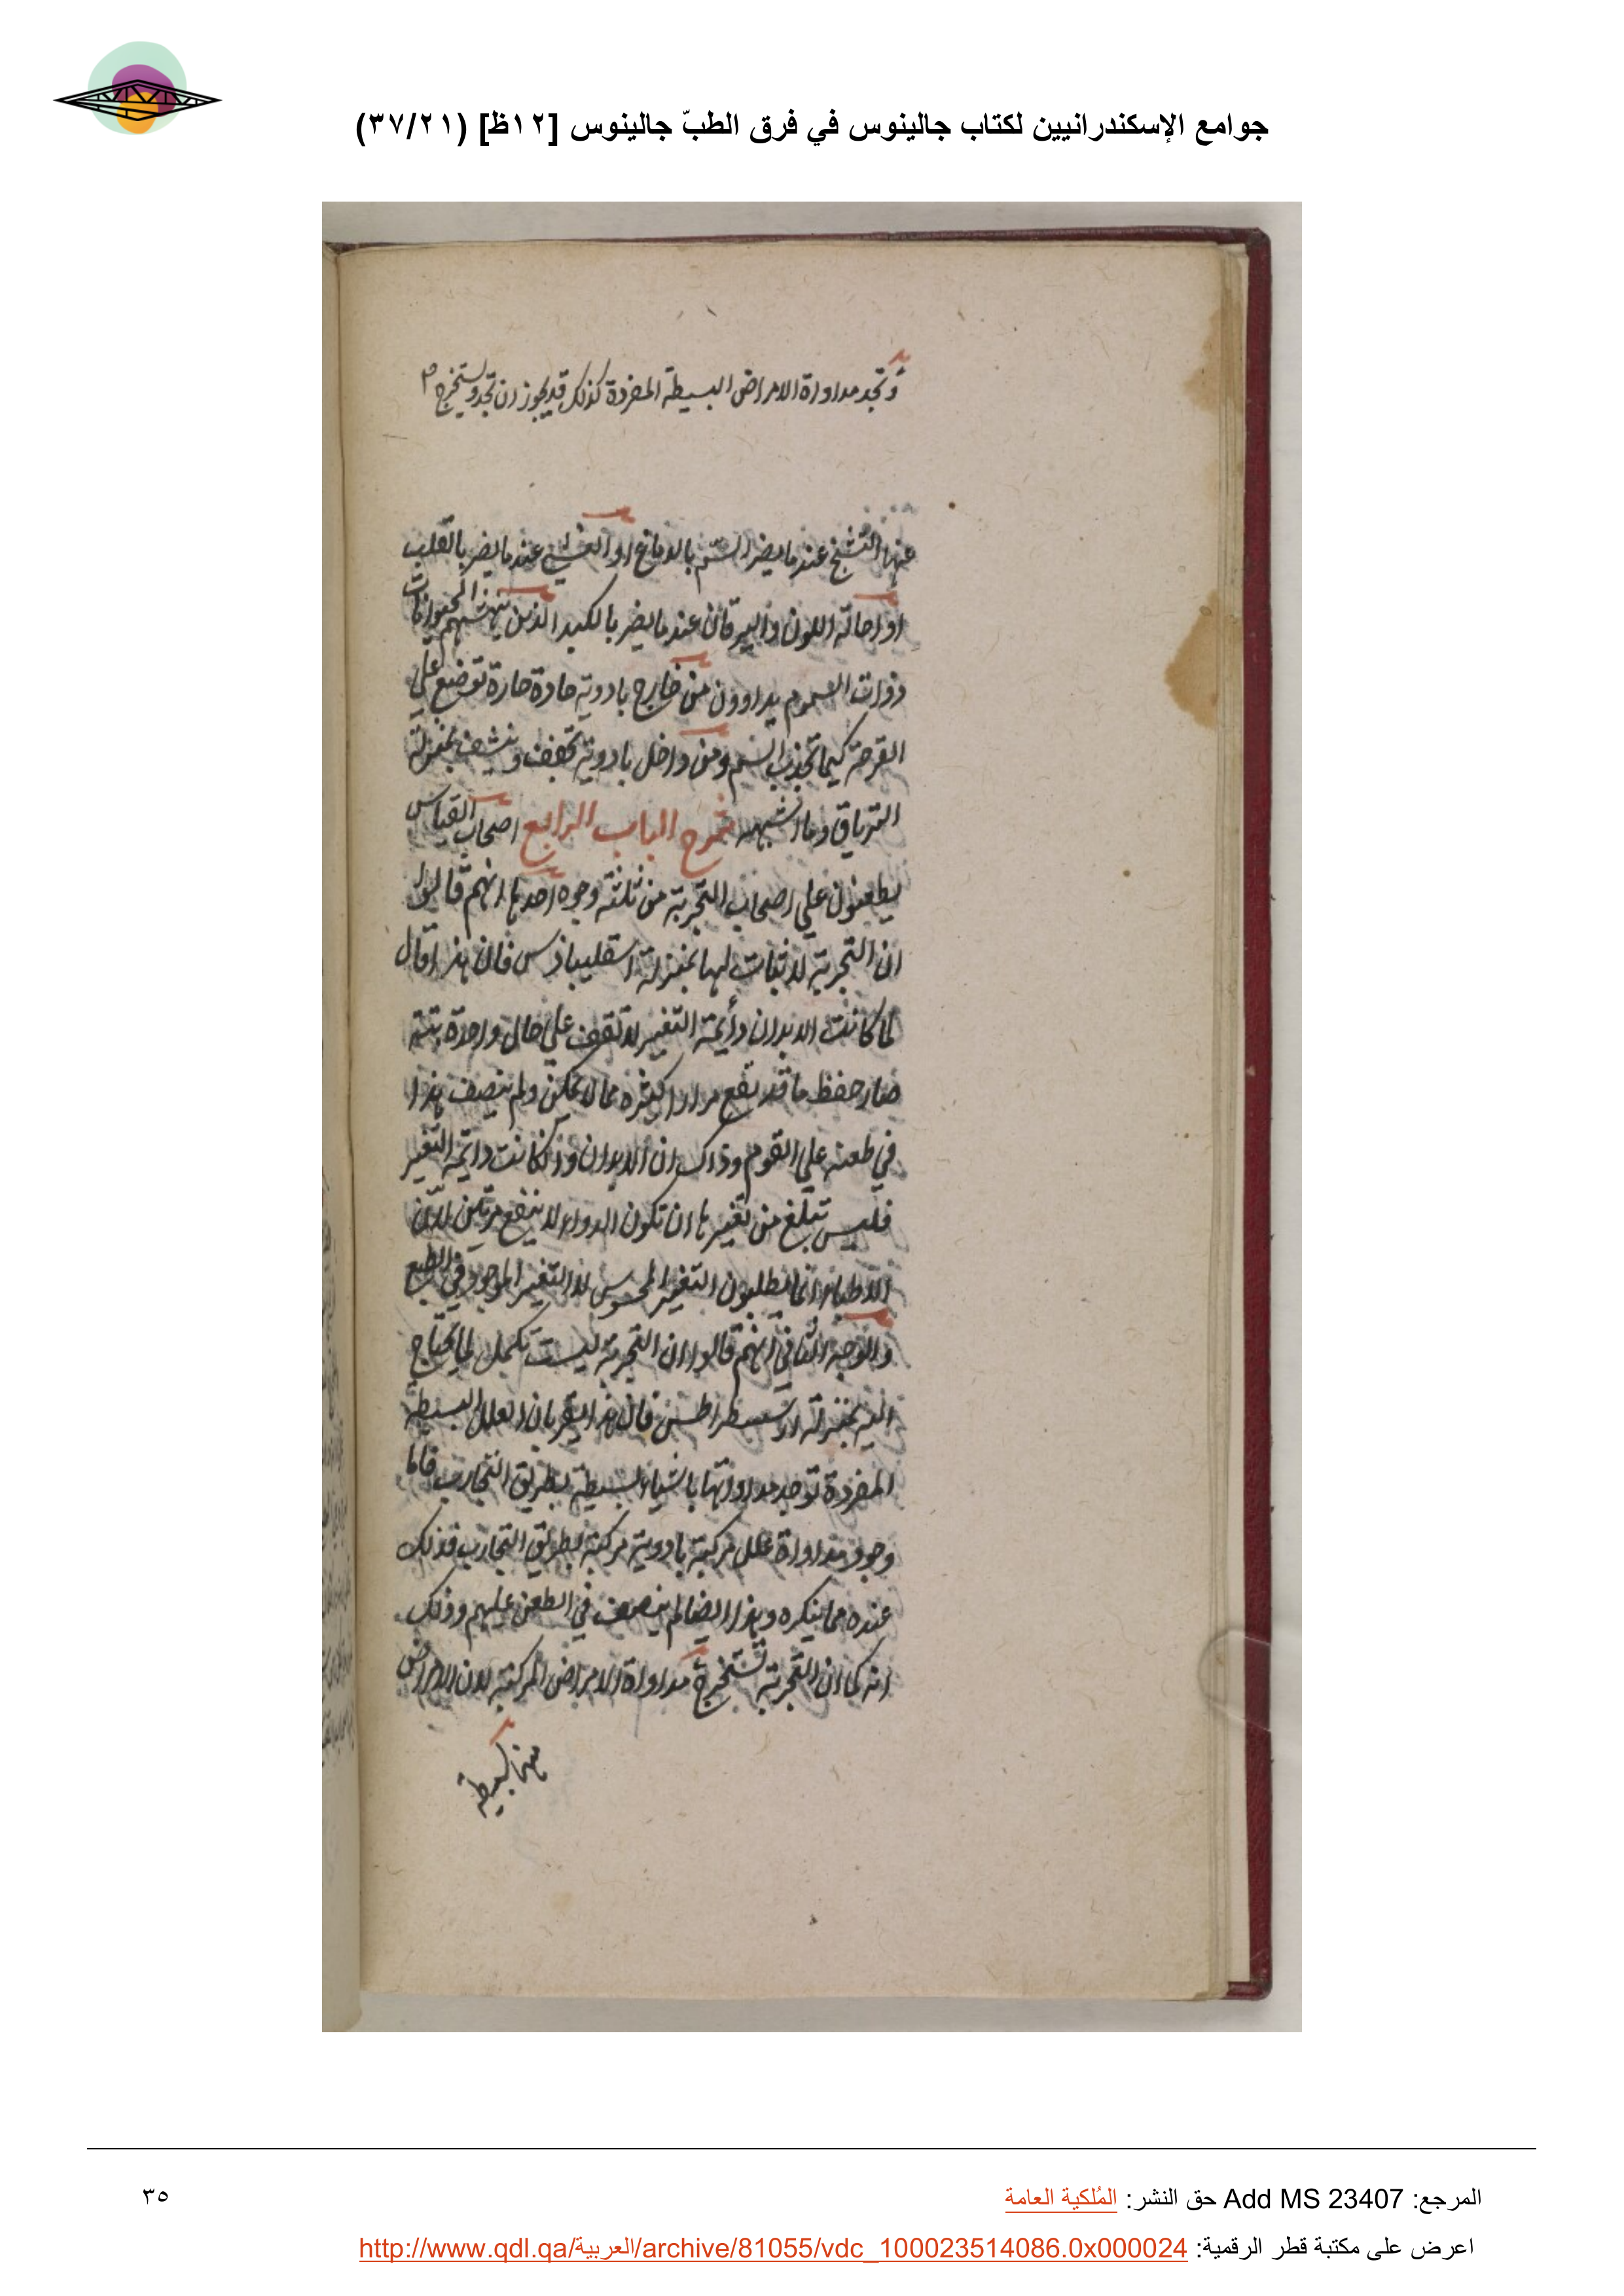 جوامع الإسكندرانيين لكتاب جالينوس في فرق الطبّ جالينوس [١٢ظ] (٣٧/٢١)
وتجد مداواة الامراض البسيطة المفردة كذلك قد يجوز ان تجد وتستخرج
عنها التشنج عندما يضر السم بالدماغ او الغشي عندما يضر بالقلب
او احالة اللون واليرقان عندما يضر بالكبد الذين تنهشهم الحيوانات
ذوات السموم يداوون من خارج بادوية حادة حارة توضع علي
القرحة كيما تجذب السم ومن داخل بادوية تجفف وتنشف بمنزلة
الترياق وما اشبهه شرح الباب الرابع اصحاب القياس
يطعنون علي اصحاب التجربة من ثلثة وجوه احدها انهم قالوا
ان التجربة لا ثبات لها بمنزلة اسقليبادس فان هذا قال
لما كانت الابدان دائمة التغير لا تقف علي حال واحدة بتة
صار حفظ ما قد نفع مرارا كثيرة مما لا يمكن ولم ينصف هذا
في طعنه علي القوم وذاك ان الابدان وان كانت دائمة التغير
فليس تبلغ من تغيرها ان تكون الدواء لا ينفع مرتين لان
الاطباء انما يطلبون التغير المحسوس لا التغير الموجود في الطبع
والوجه الثاني انهم قالوا ان التجربة ليست تكمل لما يحتاج
اليه بمنزلة ارسسطراطس فان هذا يقر بان العلل البسيطة
المفردة توجد مداواتها باشياء بسيطة بطريق التجارب فاما
وجود مداواة علل مركبة بادوية مركبة بطريق التجارب فذلك
عنده مما ينكره وهذا ايضا لم ينصف في الطعن عليهم وذلك
انه كما ان التجربة تستخرج مداواة الامراض المركبة لان الامراض
المرجع: Add MS 23407 حق النشر: المُلكية العامة
٣٥
اعرض على مكتبة قطر الرقمية: http://www.qdl.qa/العربية/archive/81055/vdc_100023514086.0x000024